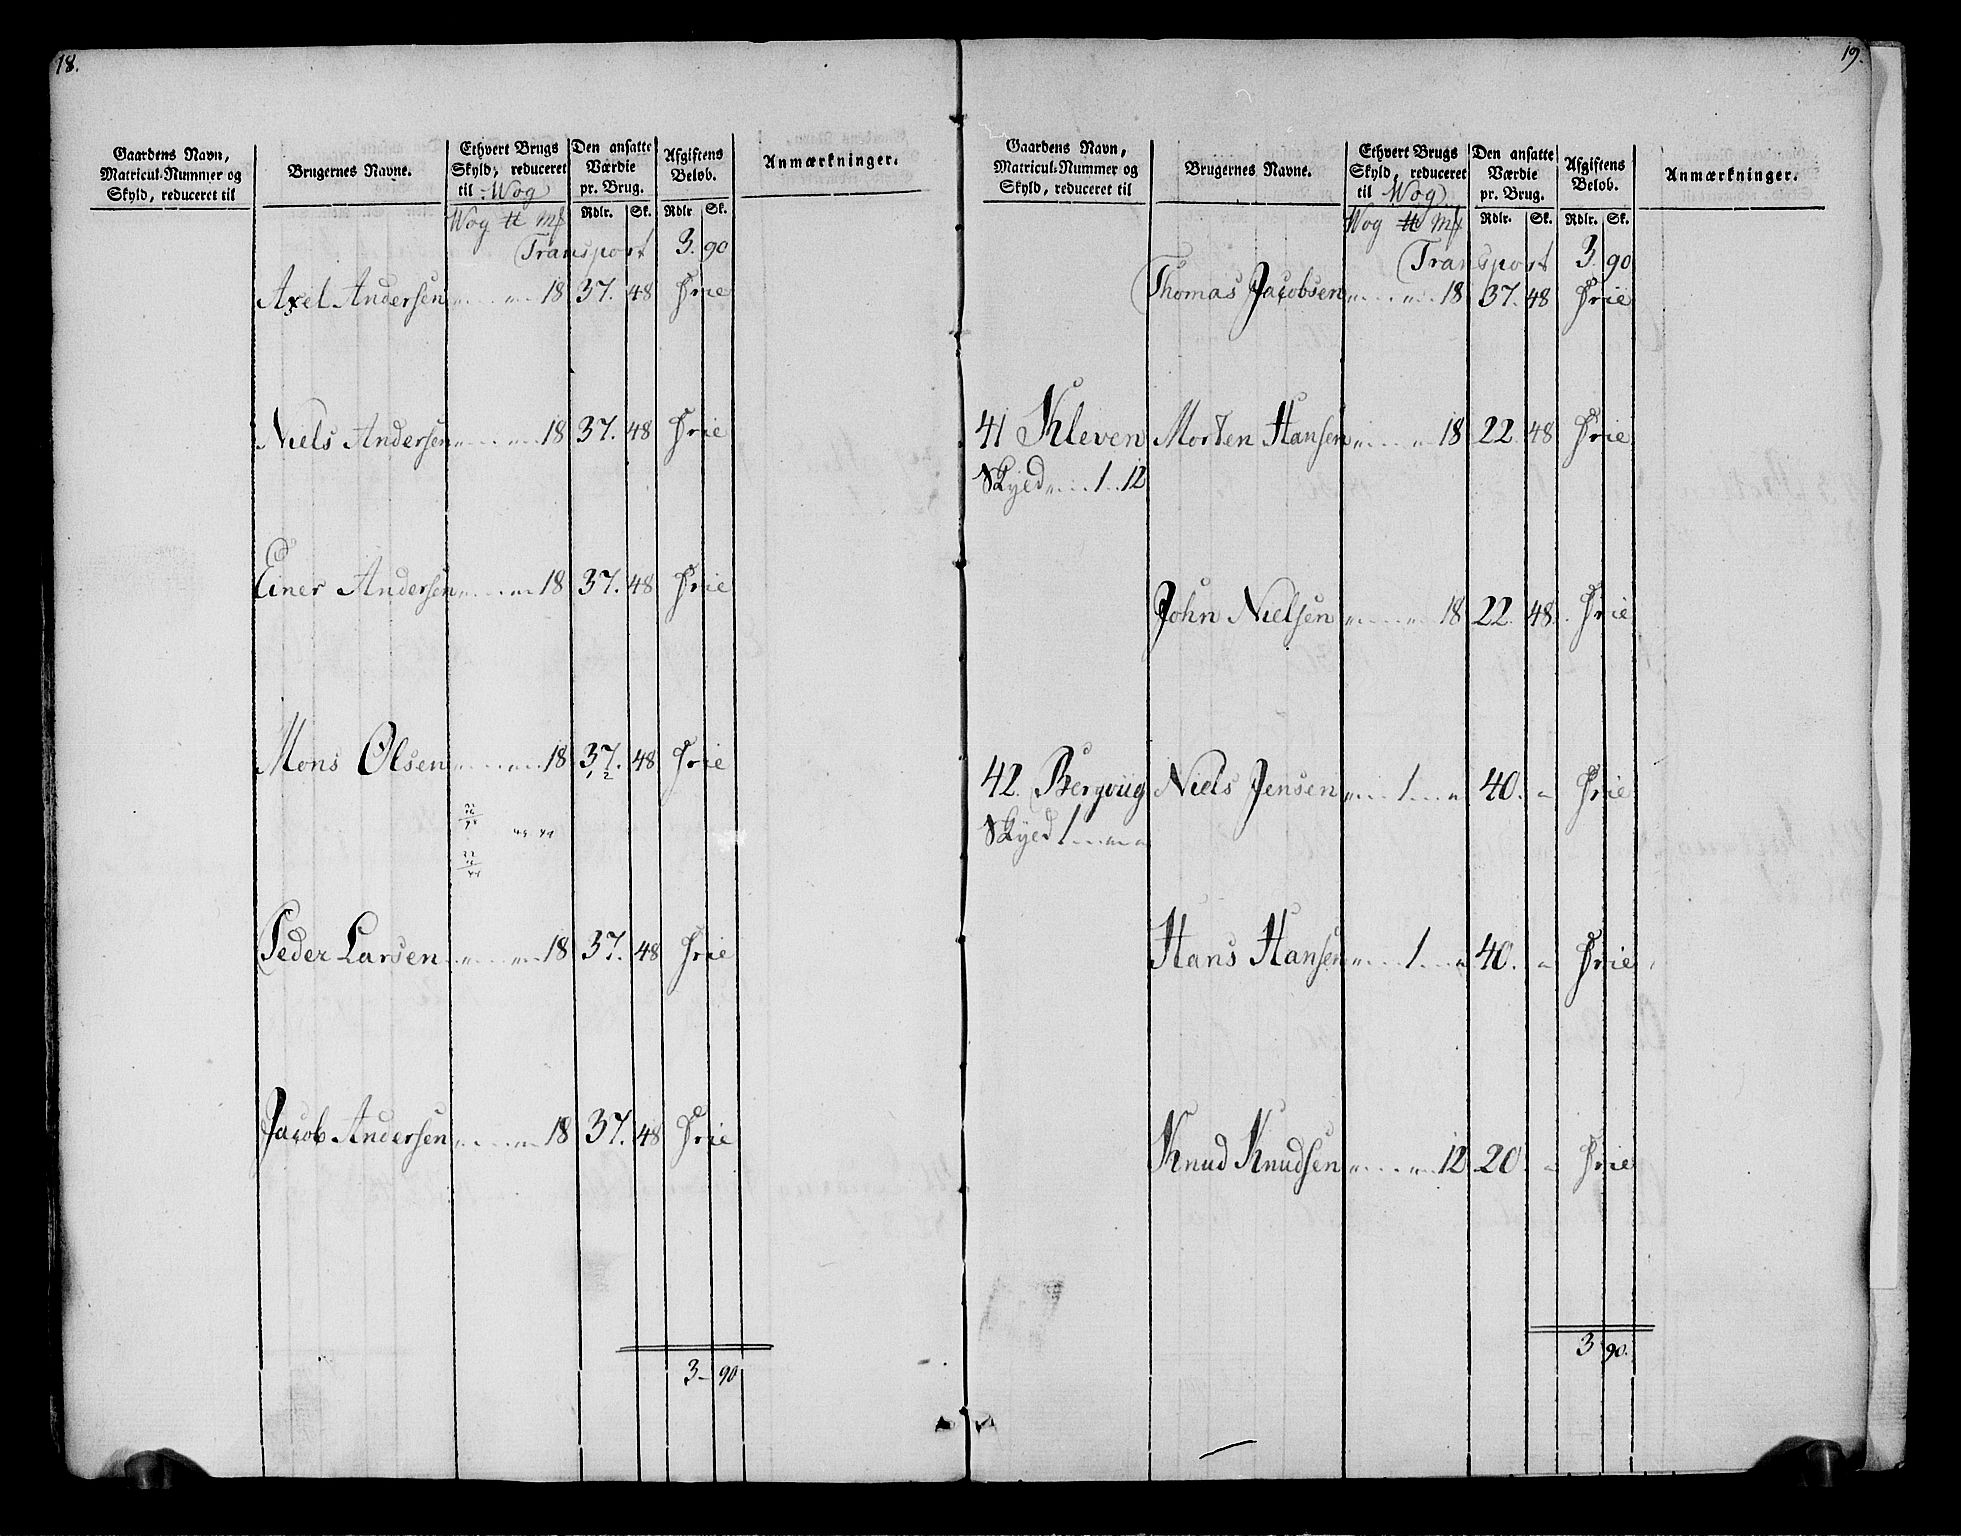 18.
Gaardens Navn, Matricul-Nummer og Skyld, reduceret til | Brugernes Navne. | Ethvert Brugs Skyld, reduceret til Wog | Den ansatte Værdie pr. Brug. | Afgiftens Beløb. | Anmærkninger.
Wog ℔ Mk | Rdlr. | Sk. | Rdlr | Sk.
Transport 3. 90
Axel Andersen " " 18 37. 48 Frie
Niels Andersen " " 18 37. 48 Frie
Einer Andersen " " 18 37. 48 Frie
Mons Olsen " " 18 37. 48 Frie
Peder Larsen " " 18 37. 48 Frie
Jacob Andersen " " 18 37. 48 Frie
3 - 90
19.
Gaardens Navn, Matricul-Nummer og Skyld, reduceret til | Brugernes Navne. | Ethvert Brugs Skyld, reduceret til Wog | Den ansatte Værdie pr. Brug. | Afgiftens Beløb. | Anmærkninger.
Wog ℔ Mk | Rdlr. | Sk. | Rdlr. | Sk.
Transport 3. 90
Thomas Jacobsen " " 18 37. 48 Frie
41 Kleven Morten Hansen " " 18 22. 48 Frie
Skyld " 1 12
John Nielsen " " 18 22. 48. Frie
42. Bergviig Niels Jensen " 1 " 40. " Frie
Skyld 1 " "
Hans Hansen " 1 " 40. " Frie
Knud Knudsen " " 12 20. " Frie
3 90.